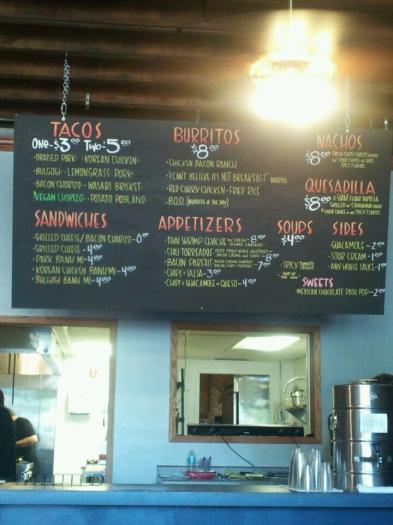 TACOS
One-$3 Two-$5
•BRAISED PORK •KOREAN CHICKEN•
•BULGOGI •LEMONGRASS PORK•
•BACON CHORIZO •WASABI BRISKET•
•VEGAN CHORIZO •POTATO POBLANO•
BURRITOS
$8
•CHICKEN BACON RANCH
•I CAN'T BELIEVE IT'S NOT BREAKFAST BURRITO
•RED CURRY CHICKEN-FRIED RICE
•B.O.D. (BURRITO OF THE DAY)
NACHOS
$8
QUESADILLA
$8
A GIANT FLOUR TORTILLA
SANDWICHES
•GRILLED CHEESE/BACON CHORIZO-6
•GRILLED CHEESE-4
•PORK BANH MI-4
•KOREAN CHICKEN BANH MI-4
•BULGOGI BANH MI-4
APPETIZERS
•THAI SHRIMP CEVICHE
•CHILI TORREADOS
•BACON PARFAIT
•CHIPS & SALSA-3
•CHIPS & GUACAMOLE OR QUESO-4
SOUPS
$4
•SPICY
SIDES
•GUACAMOLE-2
•SOUR CREAM-1
•ANY HOUSE SAUCE-1
SWEETS
•MEXICAN CHOCOLATE PUSH POP-2